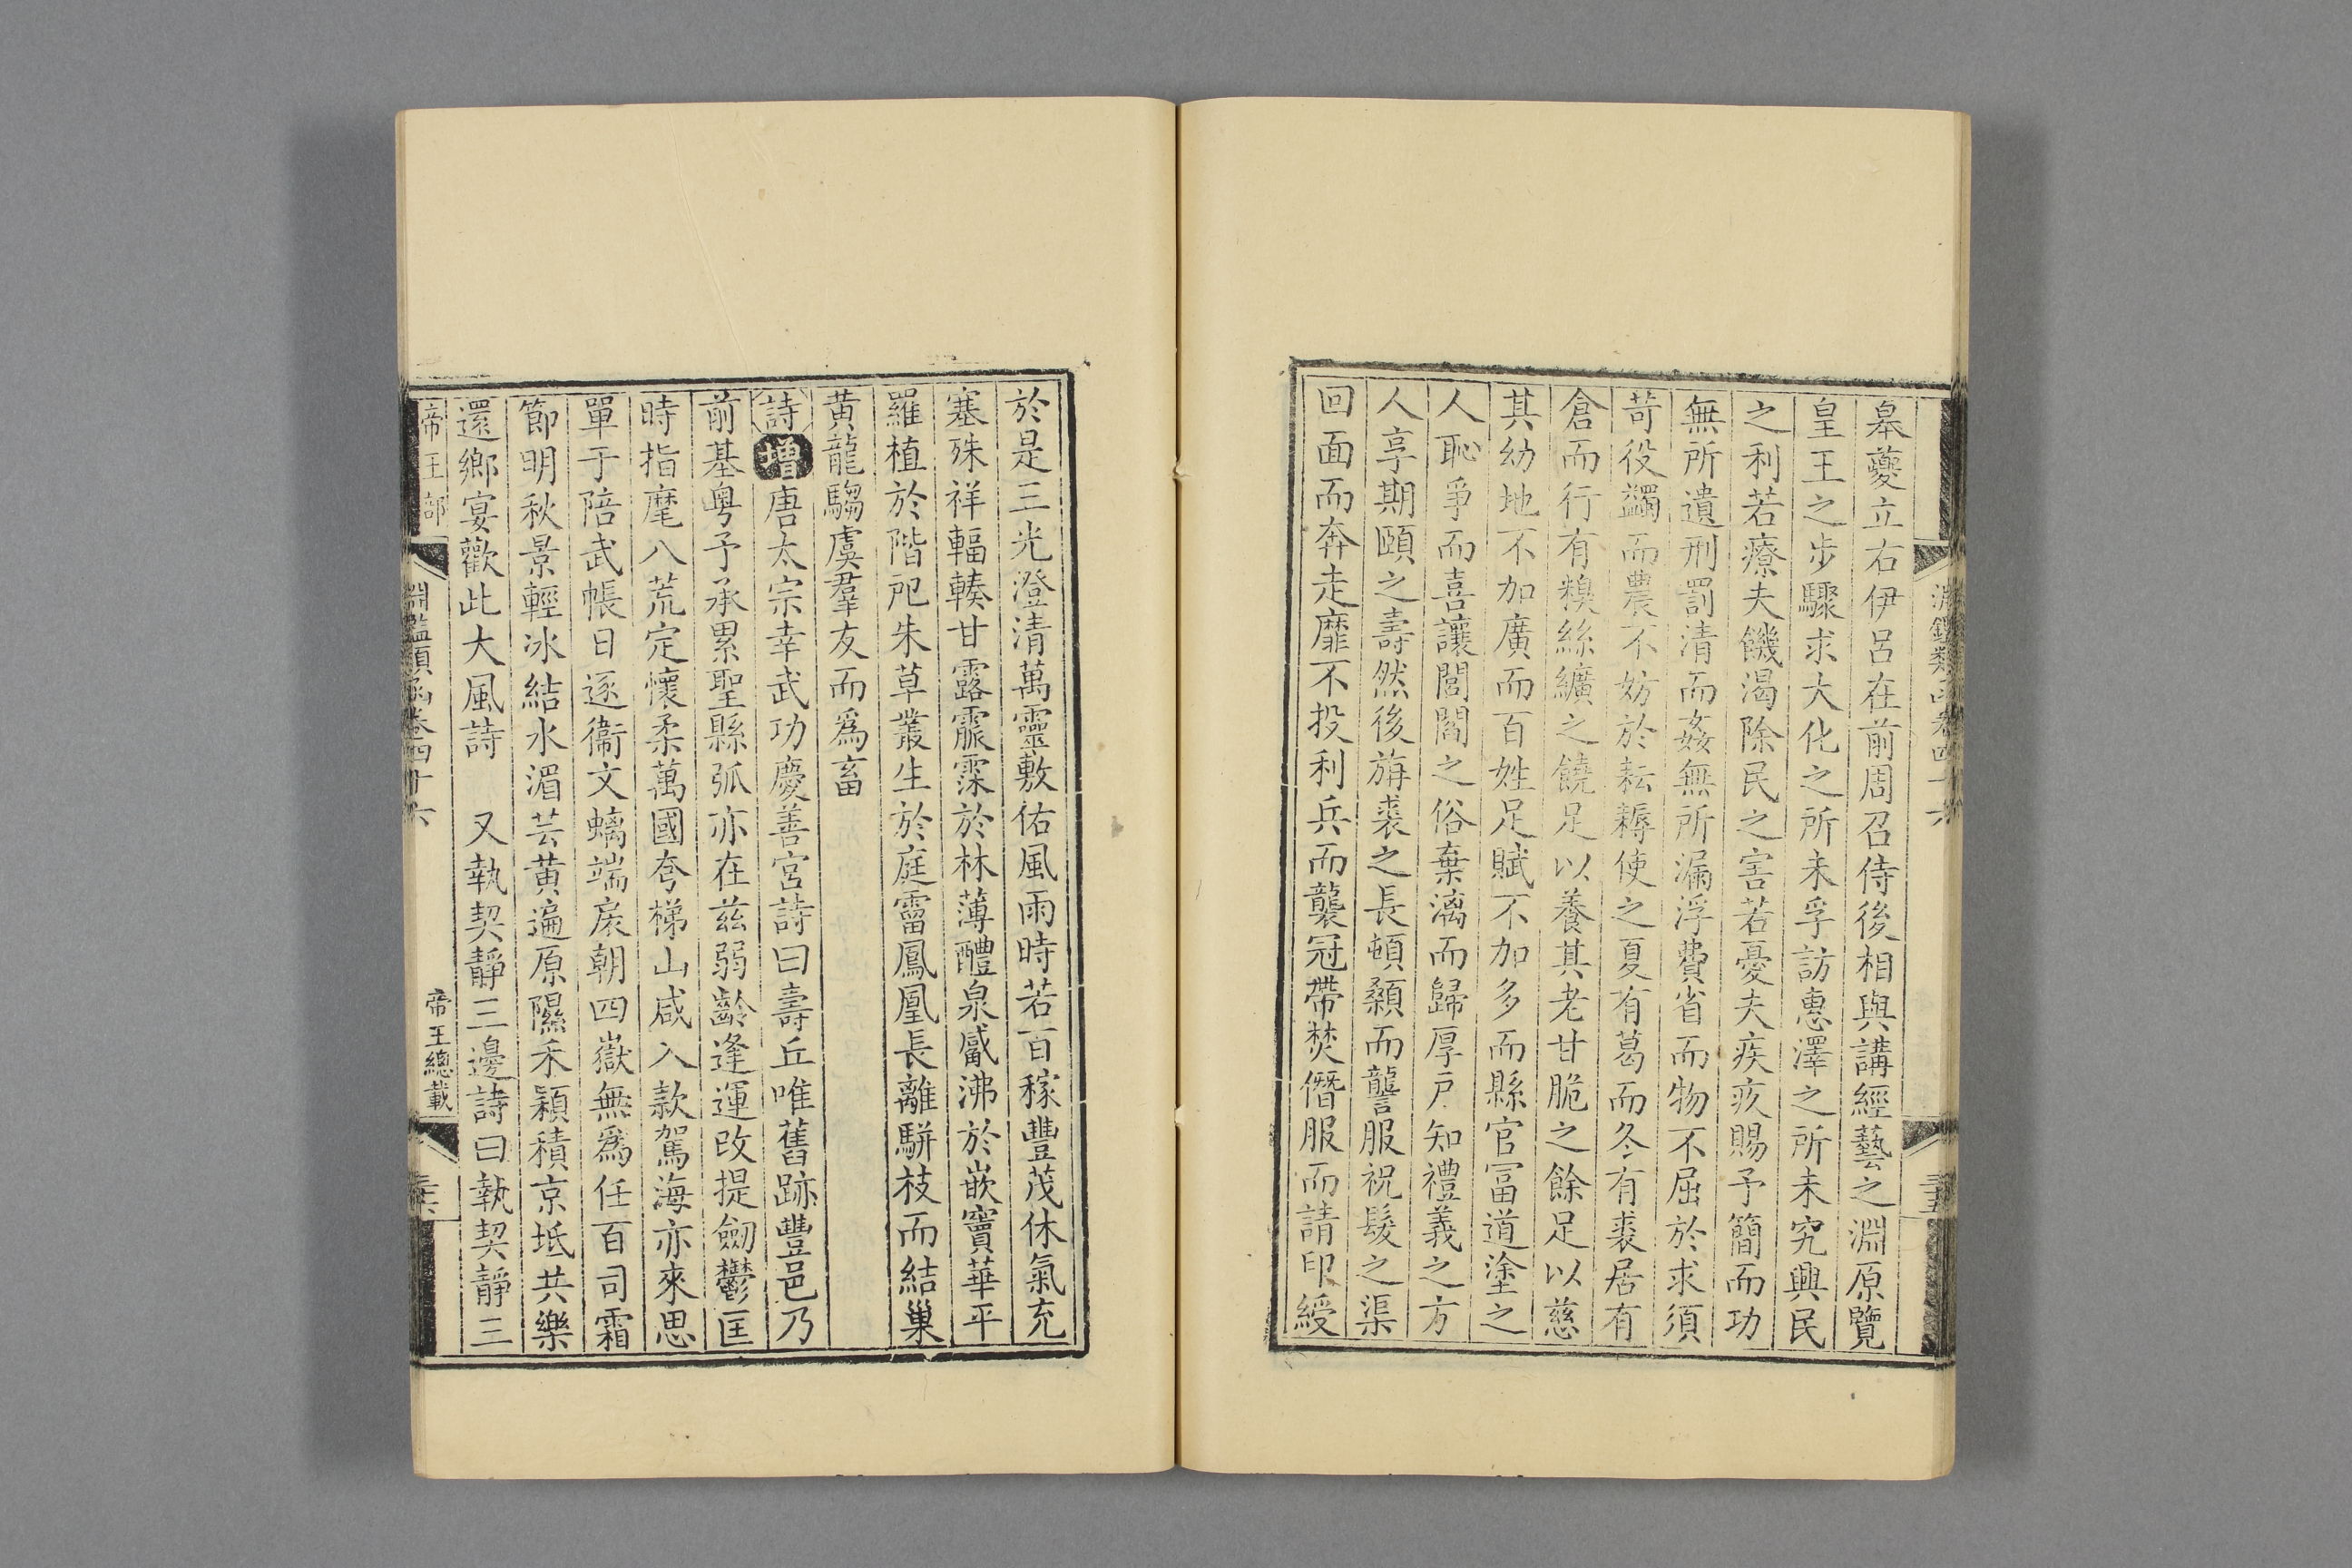 皋夔立右伊呂在前周召侍後相與講經藝之淵原覽
皇王之步驟求大化之所未孚訪惠澤之所未究興民
之利若療夫饑渴除民之害若憂夫疾疚賜予簡而功
無所遺刑罰清而姦無所漏浮費省而物不屈於求須
苛役蠲而農不妨於耘耨使之夏有葛而冬有裘居有
倉而行有糗絲纊之饒足以養其老甘脆之餘足以慈
其幼地不加廣而百姓足賦不加多而縣官冨道塗之
人恥爭而喜讓閭閻之俗棄漓而歸厚戶知禮義之方
人享期頤之壽然後旃裘之長頓顙而讋服祝髮之渠
回面而奔走靡不投利兵而襲冠帶焚僭服而請印綬
於是三光澄清萬靈敷佑風雨時若百稼豐茂休氣充
塞殊祥輻輳甘露霢霂於林薄醴泉觱沸於嵌竇華平
羅植於階戺朱草叢生於庭霤鳳凰長離駢枝而結巢
黃龍騶虞羣友而爲畜
詩增唐太宗幸武功慶善宮詩曰壽丘唯舊跡豐邑乃
前基粵予承累聖縣弧亦在兹弱齡逢運改提劒鬱匡
時指麾八荒定懷柔萬國夸梯山咸入款駕海亦來思
單于陪武帳日逐衞文螭端扆朝四嶽無爲任百司霜
節明秋景輕冰結水湄芸黃遍原隰禾穎積京坻共樂
還鄉宴歡此大風詩 又執契靜三邊詩曰執契靜三
帝王部 淵鑑類函卷四十六 帝王總載 三十六